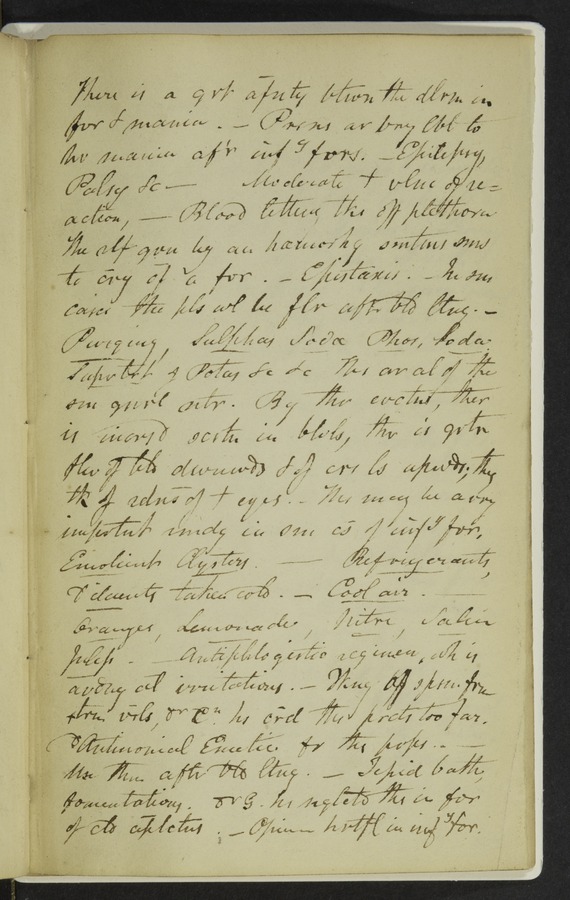 There is a grt afnty btwn the dlrm in
fvr & mania. – Prsns ar vry lbl to
hv mania aftr inf^y fvrs. – Epilepsy,
Palsy &c — Moderate + vlnc of re=
action, — Blood letting ths off plethora
The rlf gvn by an hamorhg smtms sms
to cry of a fvr. – Epistaxis. – In sm
cases the pls wl be flr aftr bld ltng. –
Purging, Sulphas Soda Phos. Soda
Suprtrt of Potas &c &c Ths ar al of the
sm gnrl ntr. By thr evctns, ther
is incrsd scrtn in bwls, thr is grtr
flw of bld dwnwds & of crs ls upwds, they
tk of rdns of + eyes. – Ths may be a vry
importnt rmdy in sm cs of inf^y fvr.
Emolient Clysters. — Refrigerants,
Diluents taken cold. – Cool air. –
Oranges, Lemonade, Nitre, Salin
Julep. – Antiphlogistic regimen, wh is
avdng al irritations. – Thng off spsm frm
vsls, Dr C^n hs crd ths prcts too far.
Antimonial Emetic fr ths prps. –
Use thm aftr bld ltng. – Tepid bath,
fomentations. Dr G. hs neglctd ths in fvr
of cld aplctns. – Opium hrtfl in inf^y fvr.